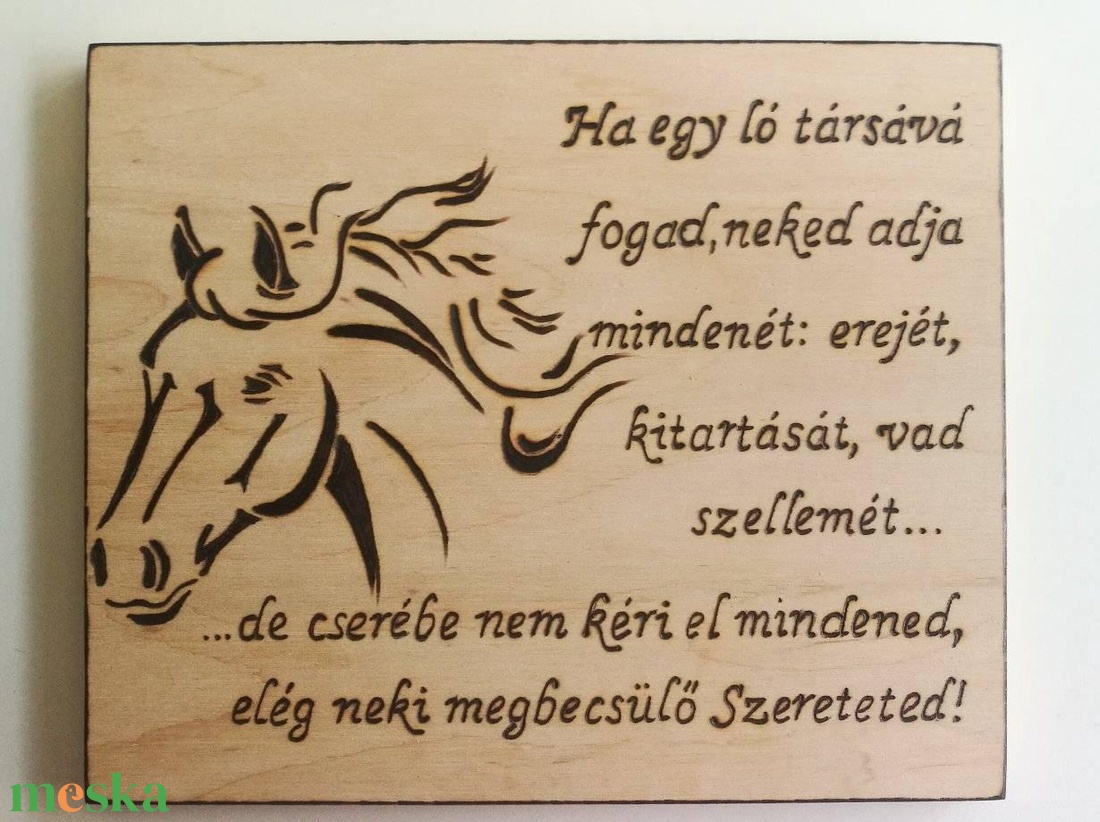 Ha egy ló társává
fogad,neked adja
mindenét: erejét,
kitartását, vad
szellemét...
...de cserébe nem kéri el mindened,
elég neki megbecsülő Szereteted!
meska